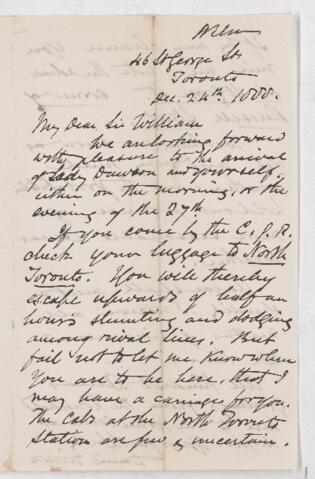 46 St George St.
Toronto
Dec. 24th. 1888.
My Dear Sir William
We are looking forward
with pleasure to the arrival
of Lady Dawson and yourself,
either on the morning, or the
evening of the 27th
If you come by the C. P. R.
check your luggage to North
Toronto. You will thereby
escape upwards of half an
hours shunting and dodging
among rival lines. But
fail not to let me know when
you are to be here, that I
may have a carriage for you.
The Cabs at the North Toronto
Station are few & uncertain.